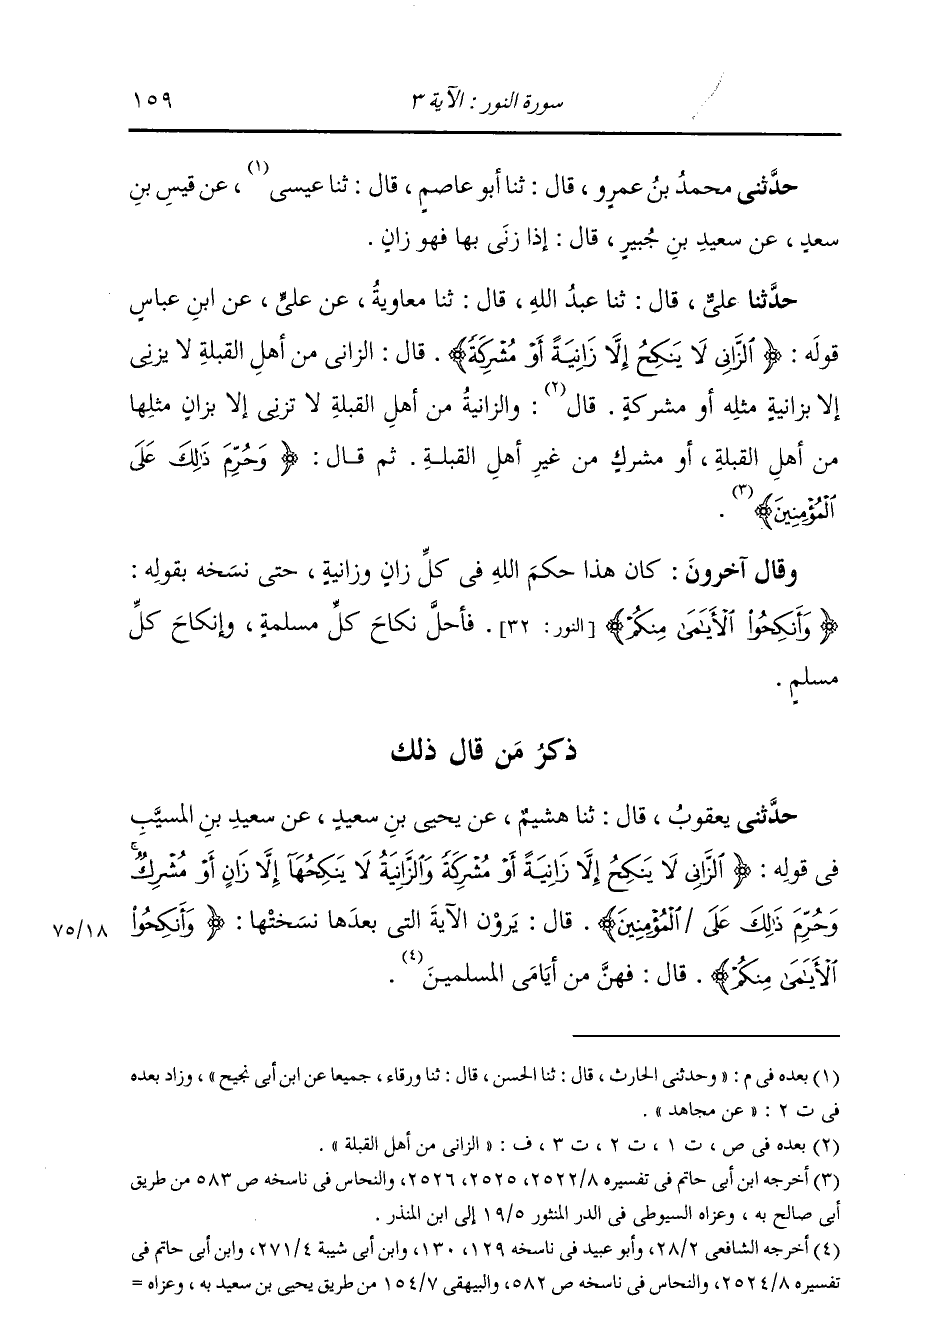 سورة النور : الآية ٣
١٥٩
حدَّثنى محمدُ بنُ عمرٍو ، قال : ثنا أبو عاصمٍ ، قال : ثنا عيسى(١) ، عن قيسِ بنِ
سعدٍ ، عن سعيدِ بنِ جُبيرٍ ، قال : إذا زنَى بها فهو زانٍ .
حدَّثنا علىٌّ ، قال : ثنا عبدُ اللهِ ، قال : ثنا معاويةُ ، عن علىٍّ ، عن ابنِ عباسٍ
قولَه : ﴿ ٱلزَّانِى لَا يَنكِحُ إِلَّا زَانِيَةً أَوْ مُشْرِكَةً ﴾ . قال : الزانى من أهلِ القبلةِ لا يزنِى
إلا بزانيةٍ مثلِه أو مشركةٍ . قال(٢) : والزانيةُ من أهلِ القبلةِ لا تزنِى إلا بزانٍ مثلِها
من أهلِ القبلةِ ، أو مشركٍ من غيرِ أهلِ القبلـةِ . ثم قـال : ﴿ وَحُرِّمَ ذَٰلِكَ عَلَى
ٱلْمُؤْمِنِينَ ﴾(٣) .
وقال آخرونَ : كان هذا حكمَ اللهِ فى كلِّ زانٍ وزانيةٍ ، حتى نسَخه بقولِه :
﴿ وَأَنكِحُوا۟ ٱلْأَيَـٰمَىٰ مِنكُمْ ﴾ [ النور : ٣٢ ] . فأحلَّ نكاحَ كلِّ مسلمةٍ ، وإنكاحَ كلِّ
مسلمٍ .
ذكرُ مَن قال ذلك
حدَّثنى يعقوبُ ، قال : ثنا هشيمٌ ، عن يحيى بنِ سعيدٍ ، عن سعيدِ بنِ المسيَّبِ
فى قولِه : ﴿ ٱلزَّانِى لَا يَنكِحُ إِلَّا زَانِيَةً أَوْ مُشْرِكَةً وَٱلزَّانِيَةُ لَا يَنكِحُهَآ إِلَّا زَانٍ أَوْ مُشْرِكٌ ۚ
وَحُرِّمَ ذَٰلِكَ عَلَى / ٱلْمُؤْمِنِينَ ﴾ . قال : يَروْن الآيةَ التى بعدَها نسَختْها : ﴿ وَأَنكِحُوا۟
٧٥/١٨
ٱلْأَيَـٰمَىٰ مِنكُمْ ﴾ . قال : فهنَّ من أيَامَى المسلمينَ(٤) .
(١) بعده فى م : « وحدثنى الحارث ، قال : ثنا الحسن ، قال : ثنا ورقاء ، جميعا عن ابن أبى نجيح » ، وزاد بعده
فى ت ٢ : « عن مجاهد » .
(٢) بعده فى ص ، ت ١ ، ت ٢ ، ت ٣ ، ف : « الزانى من أهل القبلة » .
(٣) أخرجه ابن أبى حاتم فى تفسيره ٢٥٢٢/٨، ٢٥٢٥، ٢٥٢٦، والنحاس فى ناسخه ص ٥٨٣ من طريق
أبى صالح به ، وعزاه السيوطى فى الدر المنثور ١٩/٥ إلى ابن المنذر .
(٤) أخرجه الشافعى ٢٨/٢، وأبو عبيد فى ناسخه ١٢٩، ١٣٠، وابن أبى شيبة ٢٧١/٤، وابن أبى حاتم فى
تفسيره ٢٥٢٤/٨، والنحاس فى ناسخه ص ٥٨٢، والبيهقى ١٥٤/٧ من طريق يحيى بن سعيد به ، وعزاه =